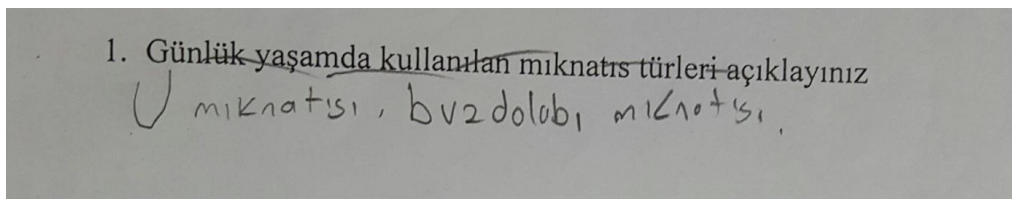 1. Günlük yaşamda kullanılan mıknatıs türleri açıklayınız
U mıknatısı, buzdolabı mıknatısı.